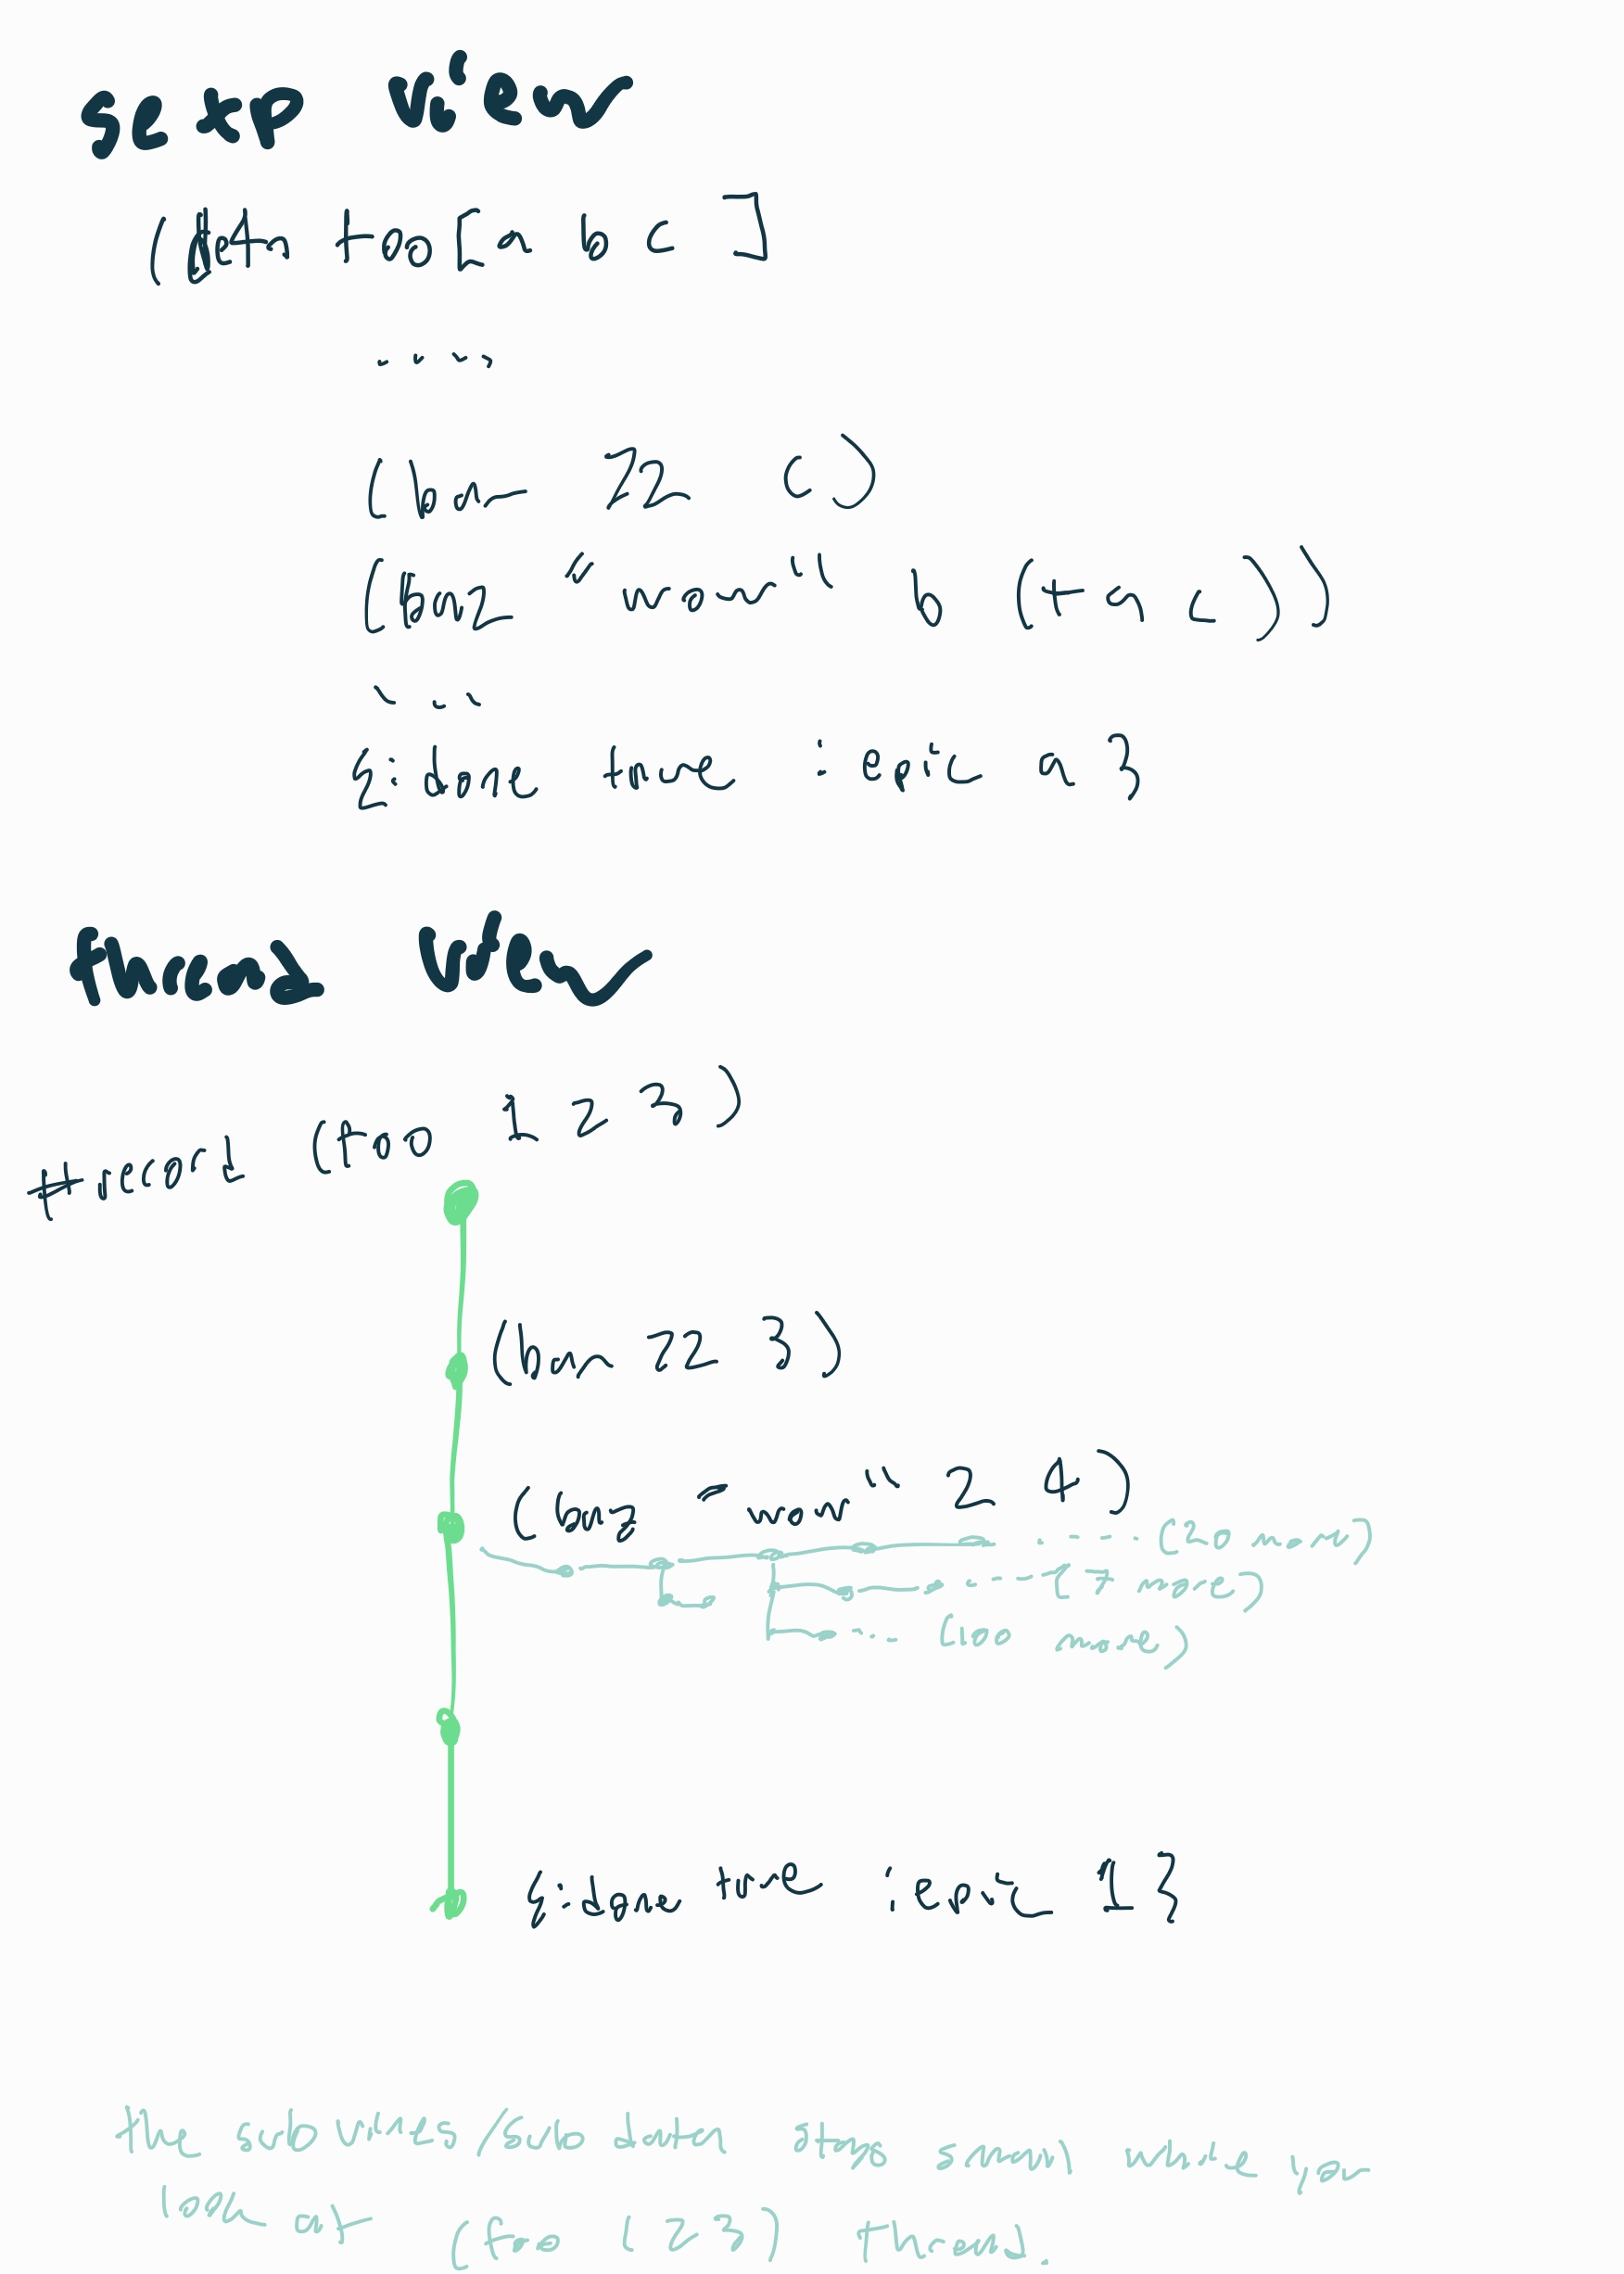 sexp view
(defn foo [a b c]
....
(bar 22 c)
(baz "wow" b (+ a c))
...
{:done true :epic a}
thread view
#record (foo 1 2 3)
(bar 22 3)
(baz "wow" 2 4)
.... (20 more)
.... (7 more)
... (100 more)
{:done true :epic 1}
the sub wires/sub data stays small while you
look at (foo 1 2 3) thread.